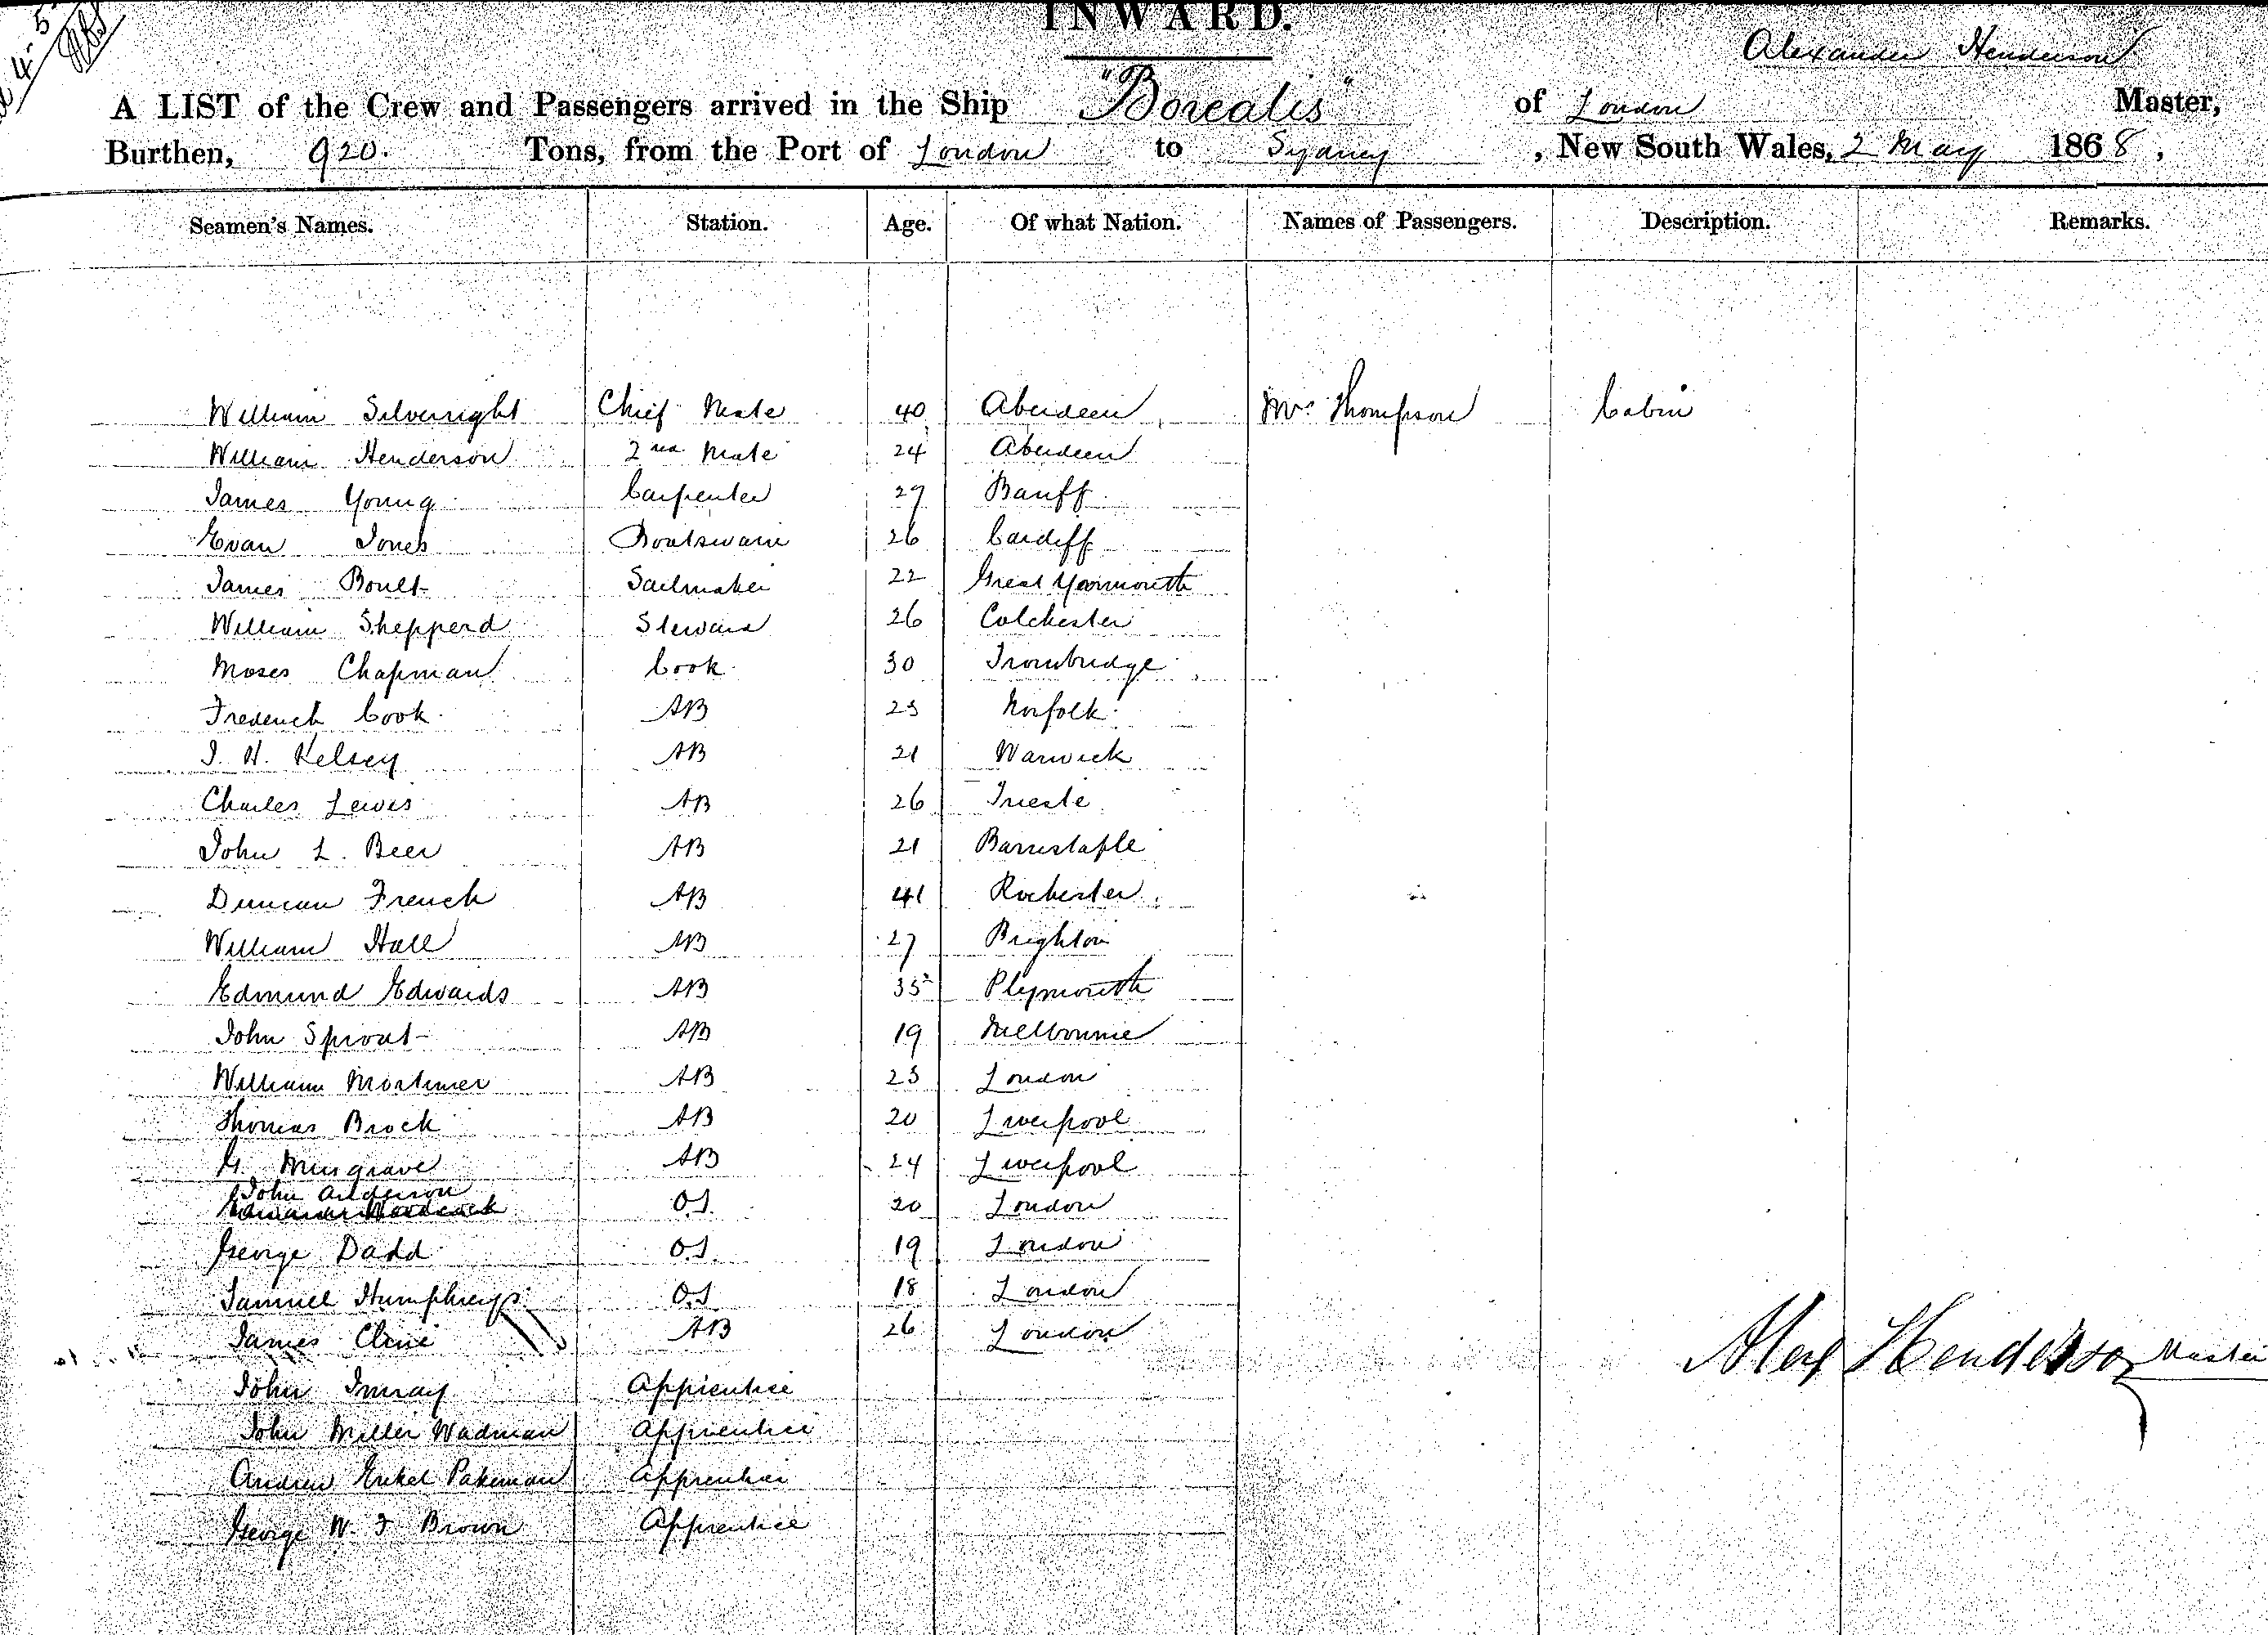 INWARD.
4-5
Alexander Henderson
A LIST of the Crew and Passengers arrived in the Ship "Borealis" of London Master,
Burthen, 920. Tons, from the Port of London to Sydney, New South Wales, 2 May 1868,
Seamen's Names. Station. Age. Of what Nation. Names of Passengers. Description. Remarks.
William Silverright Chief Mate 40 Aberdeen Mr Thompson Cabin
William Henderson 2nd Mate 24 Aberdeen
James Young Carpenter 27 Banff
Evan Jones Boatswain 26 Cardiff
James Boult Sailmaker 22 Great Yarmouth
William Shepperd Steward 26 Colchester
Moses Chapman Cook 30 Trowbridge
Frederick Cook AB 23 Norfolk
J. H. Kelsey AB 21 Warwick
Charles Lewis AB 26 Trieste
John L. Beer AB 21 Barnstaple
Duncan French AB 41 Rochester
William Hall AB 27 Brighton
Edmund Edwards AB 35 Plymouth
John Sprout AB 19 Melbourne
William Mortimer AB 23 London
Thomas Brock AB 20 Liverpool
G. Musgrave AB 24 Liverpool
John Anderson
Edward Woodcock O.S. 20 London
George Dadd O.S. 19 London
Samuel Humphreys O.S. 18 London
James Clive AB 26 London
Alex Henderson Master
John Imray Apprentice
John Miller Wadman Apprentice
Andrew Pakeman Apprentice
George W. F Brown Apprentice